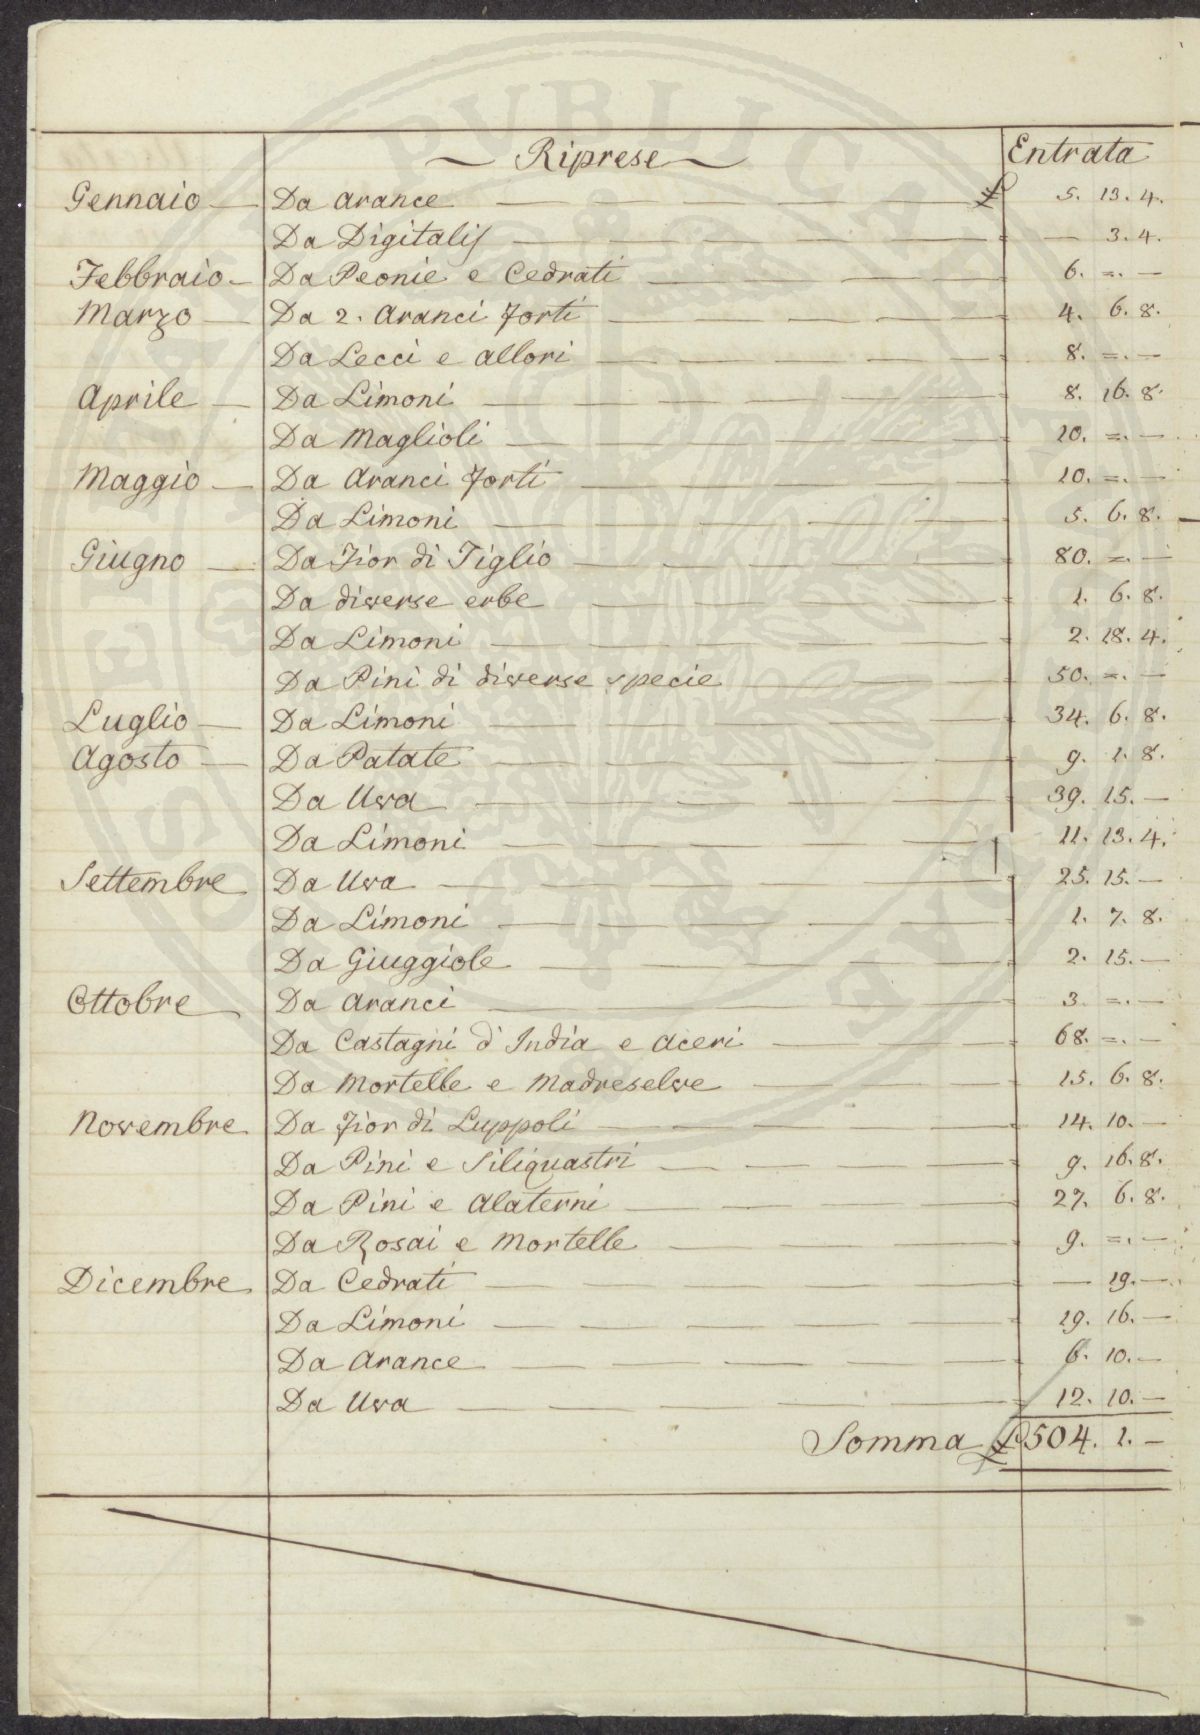 Riprese Entrata
Gennaio Da Arance £ 5. 13. 4.
Da Digitalis — 3. 4.
Febbraio Da Peonie e Cedrati 6. =. —
Marzo Da 2. Aranci forti 4. 6. 8.
Da Lecci e Allori 8. =. —
Aprile Da Limoni 8. 16. 8.
Da Maglioli 10. =. —
Maggio Da Aranci forti 10. =. —
Da Limoni 5. 6. 8.
Giugno Da Fior di Tiglio 80. =. —
Da diverse erbe 1. 6. 8.
Da Limoni 2. 18. 4.
Da Pini di diverse specie 50. =. —
Luglio Da Limoni 34. 6. 8.
Agosto Da Patate 9. 1. 8.
Da Uva 39. 15. —
Da Limoni 11. 13. 4.
Settembre Da Uva 25. 15. —
Da Limoni 1. 7. 8.
Da Giuggiole 2. 15. —
Ottobre Da Aranci 3 =. —
Da Castagni d'India e Aceri 68. =. —
Da Mortelle e Madreselve 15. 6. 8.
Novembre Da Fior di Luppoli 14. 10. —
Da Pini e Siliquastri 9. 16. 8.
Da Pini e Alaterni 27. 6. 8.
Da Rosai e Mortelle 9. =. —
Dicembre Da Cedrati — 19. —
Da Limoni 19. 16. —
Da Arance 6. 10. —
Da Uva 12. 10. —
Somma £ 504. 1. —